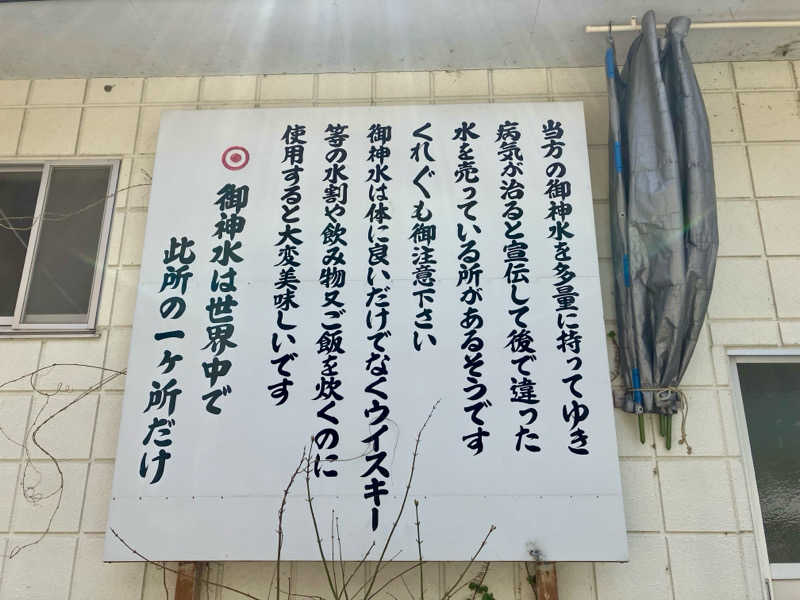 当方の御神水を多量に持ってゆき
病気が治ると宣伝して後で違った
水を売っている所があるそうです
くれぐも御注意下さい
御神水は体に良いだけでなくウイスキー
等の水割や飲み物又ご飯を炊くのに
使用すると大変美味しいです
御神水は世界中で
此所の一ヶ所だけ